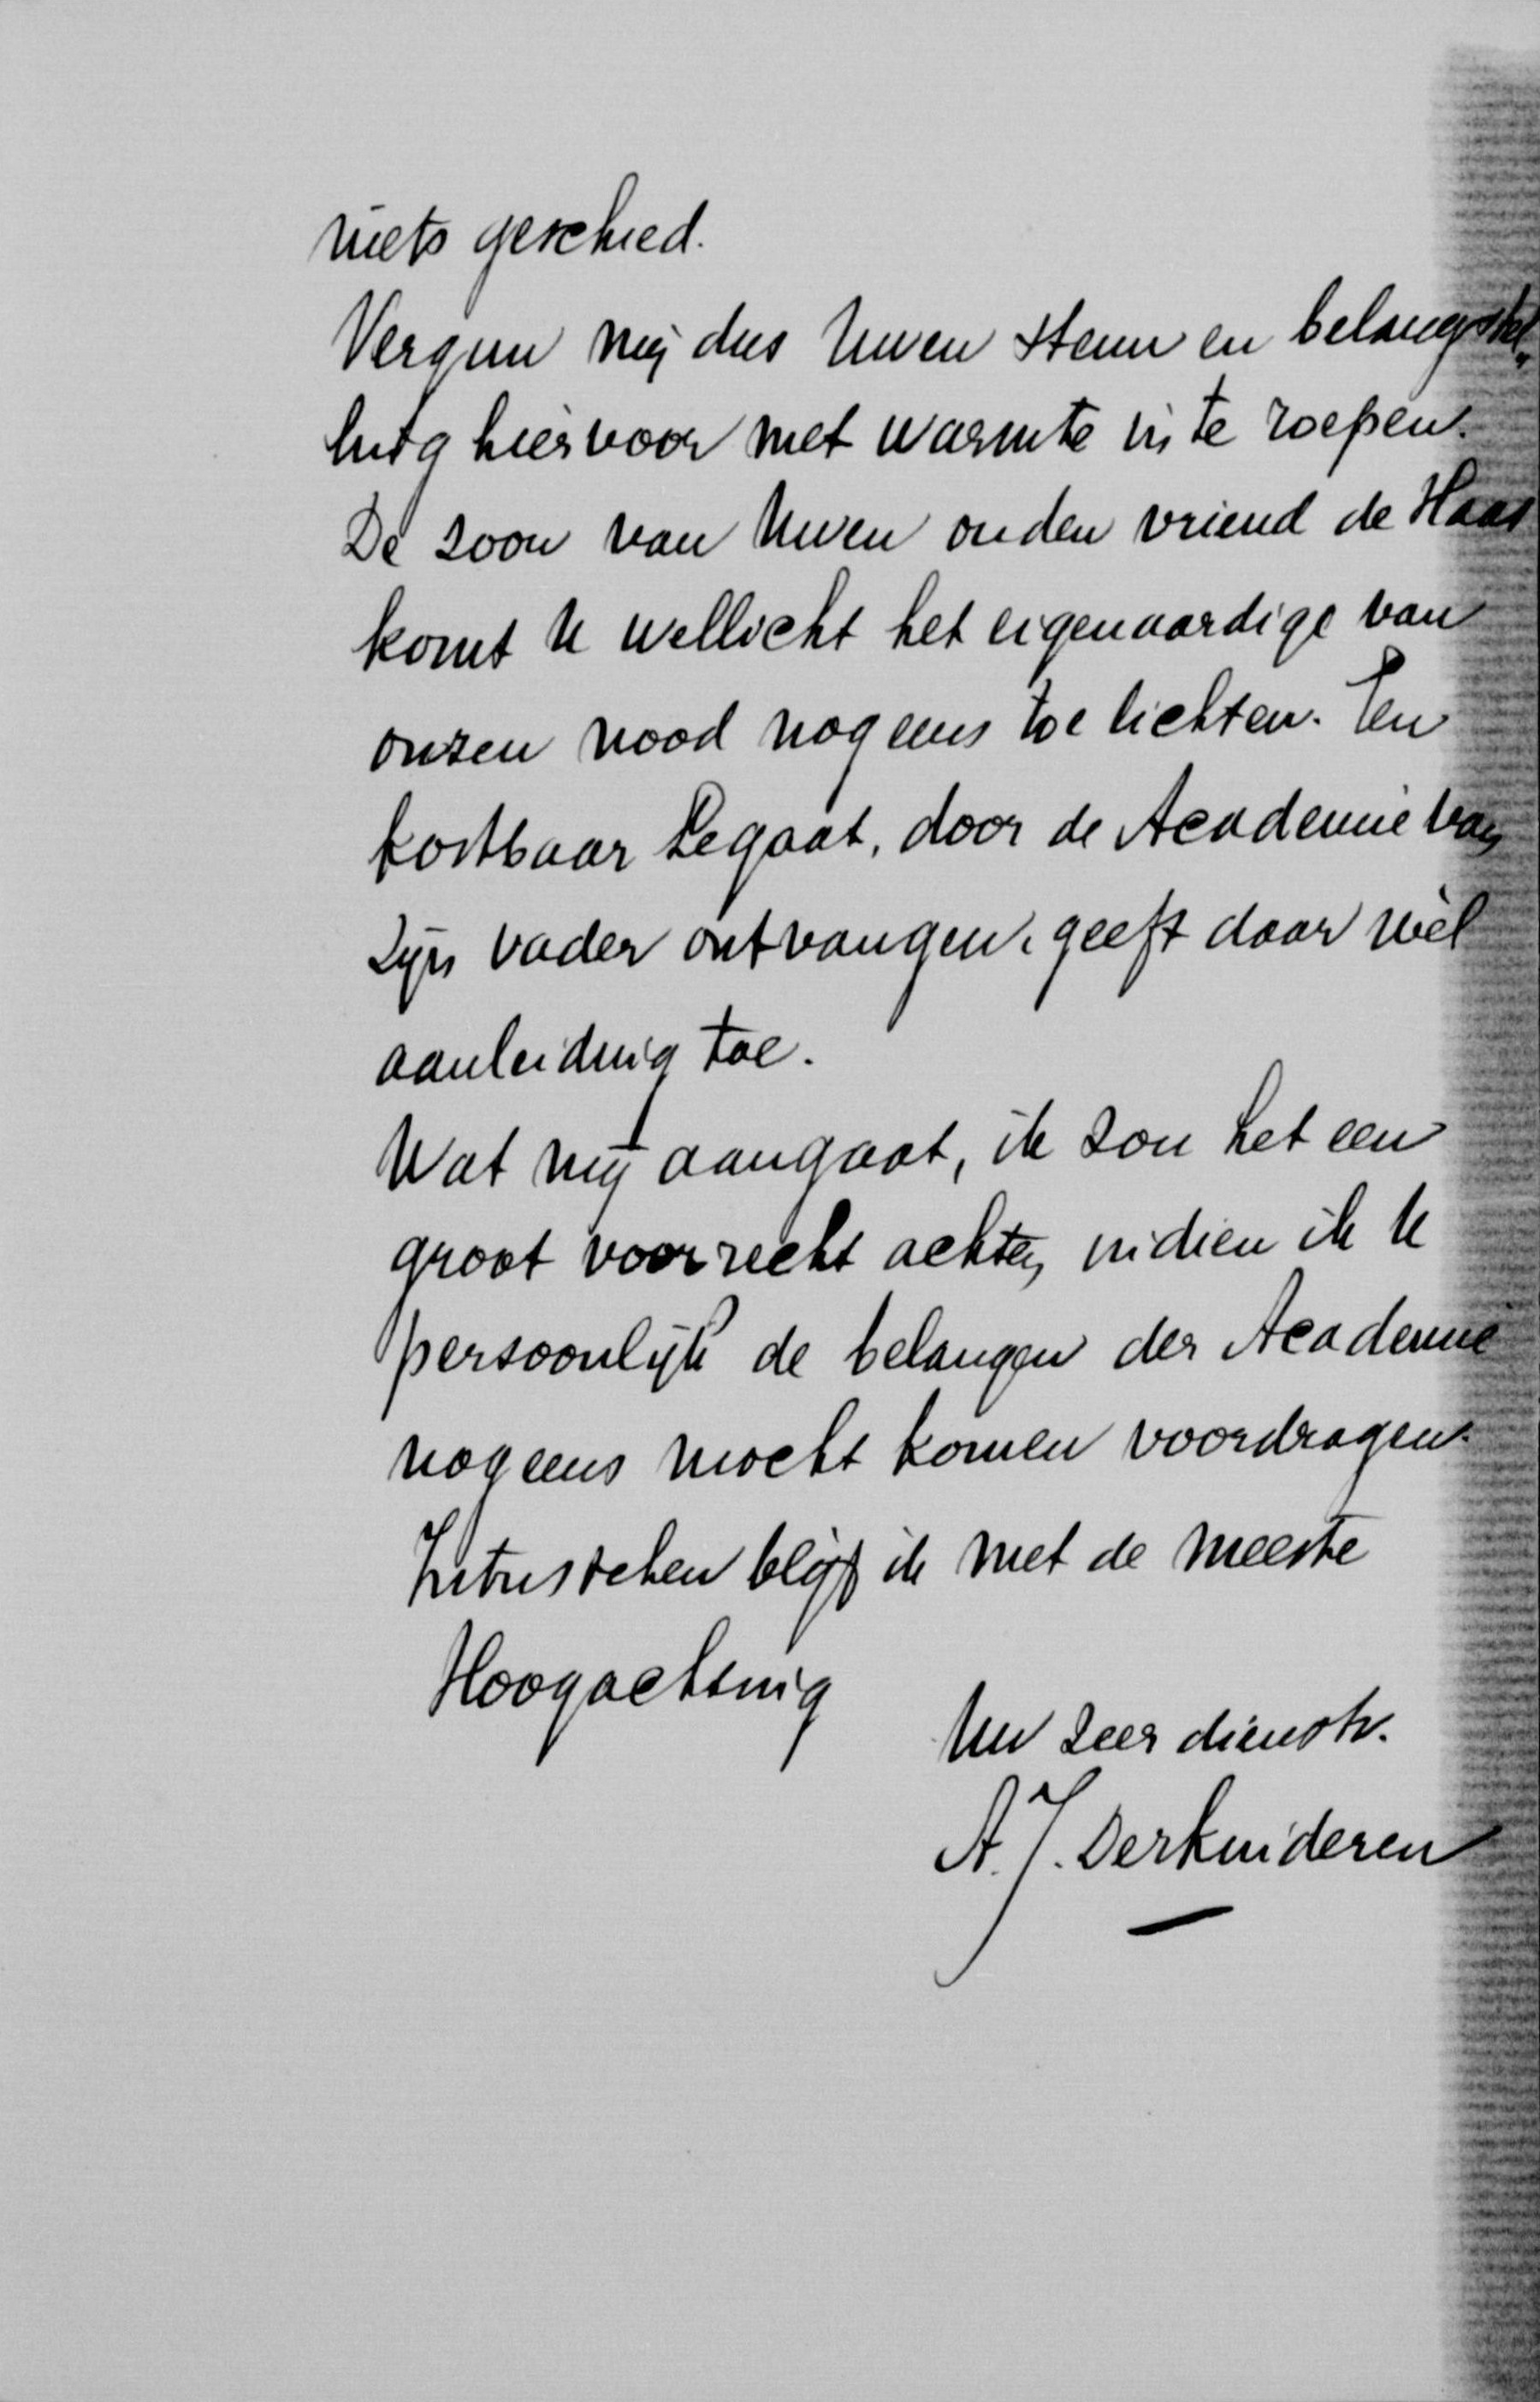 niets geschied.
Vergun mij dus Uwen steun en belangstel„
ling hiervoor met warmte in te roepen.
De zoon van Uwen ouden vriend de Haas
komt U wellicht het eigenaardige van
onzen nood nog eens toe lichten. Een
kostbaar Legaat, door de Academie van
zijn vader ontvangen, geeft daar wèl
aanleiding toe.
Wat mij aangaat, ik zou het een
groot voorrecht achten, indien ik U
persoonlijk de belangen der Academie
nog eens mocht komen voordragen.
Intusschen blijf ik met de meeste
Hoogachting
Uw zeer dienstv.
A. J. Derkinderen